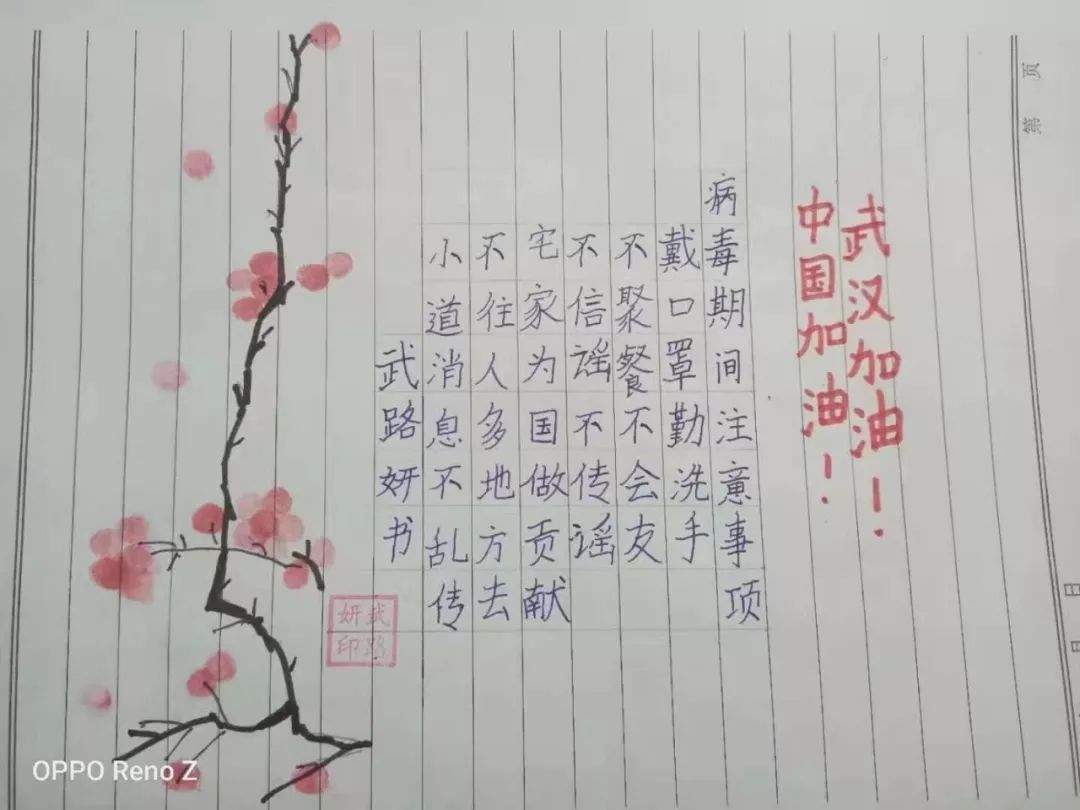 武汉加油！
中国加油！
病毒期间注意事项
戴口罩勤洗手
不聚餐不会友
不信谣不传谣
宅家为国做贡献
不往人多地方去
小道消息不乱传
武路妍书
武路
妍印
第 页
OPPO Reno Z